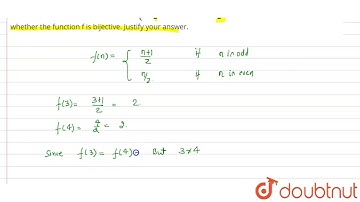 whether the function f is bijective. Justify your answer.
f(n) = { n+1/2 if n is odd
n/2 if n is even
f(3) = 3+1/2 = 2
f(4) = 4/2 = 2.
Since f(3) = f(4) But 3≠4
doubtnut